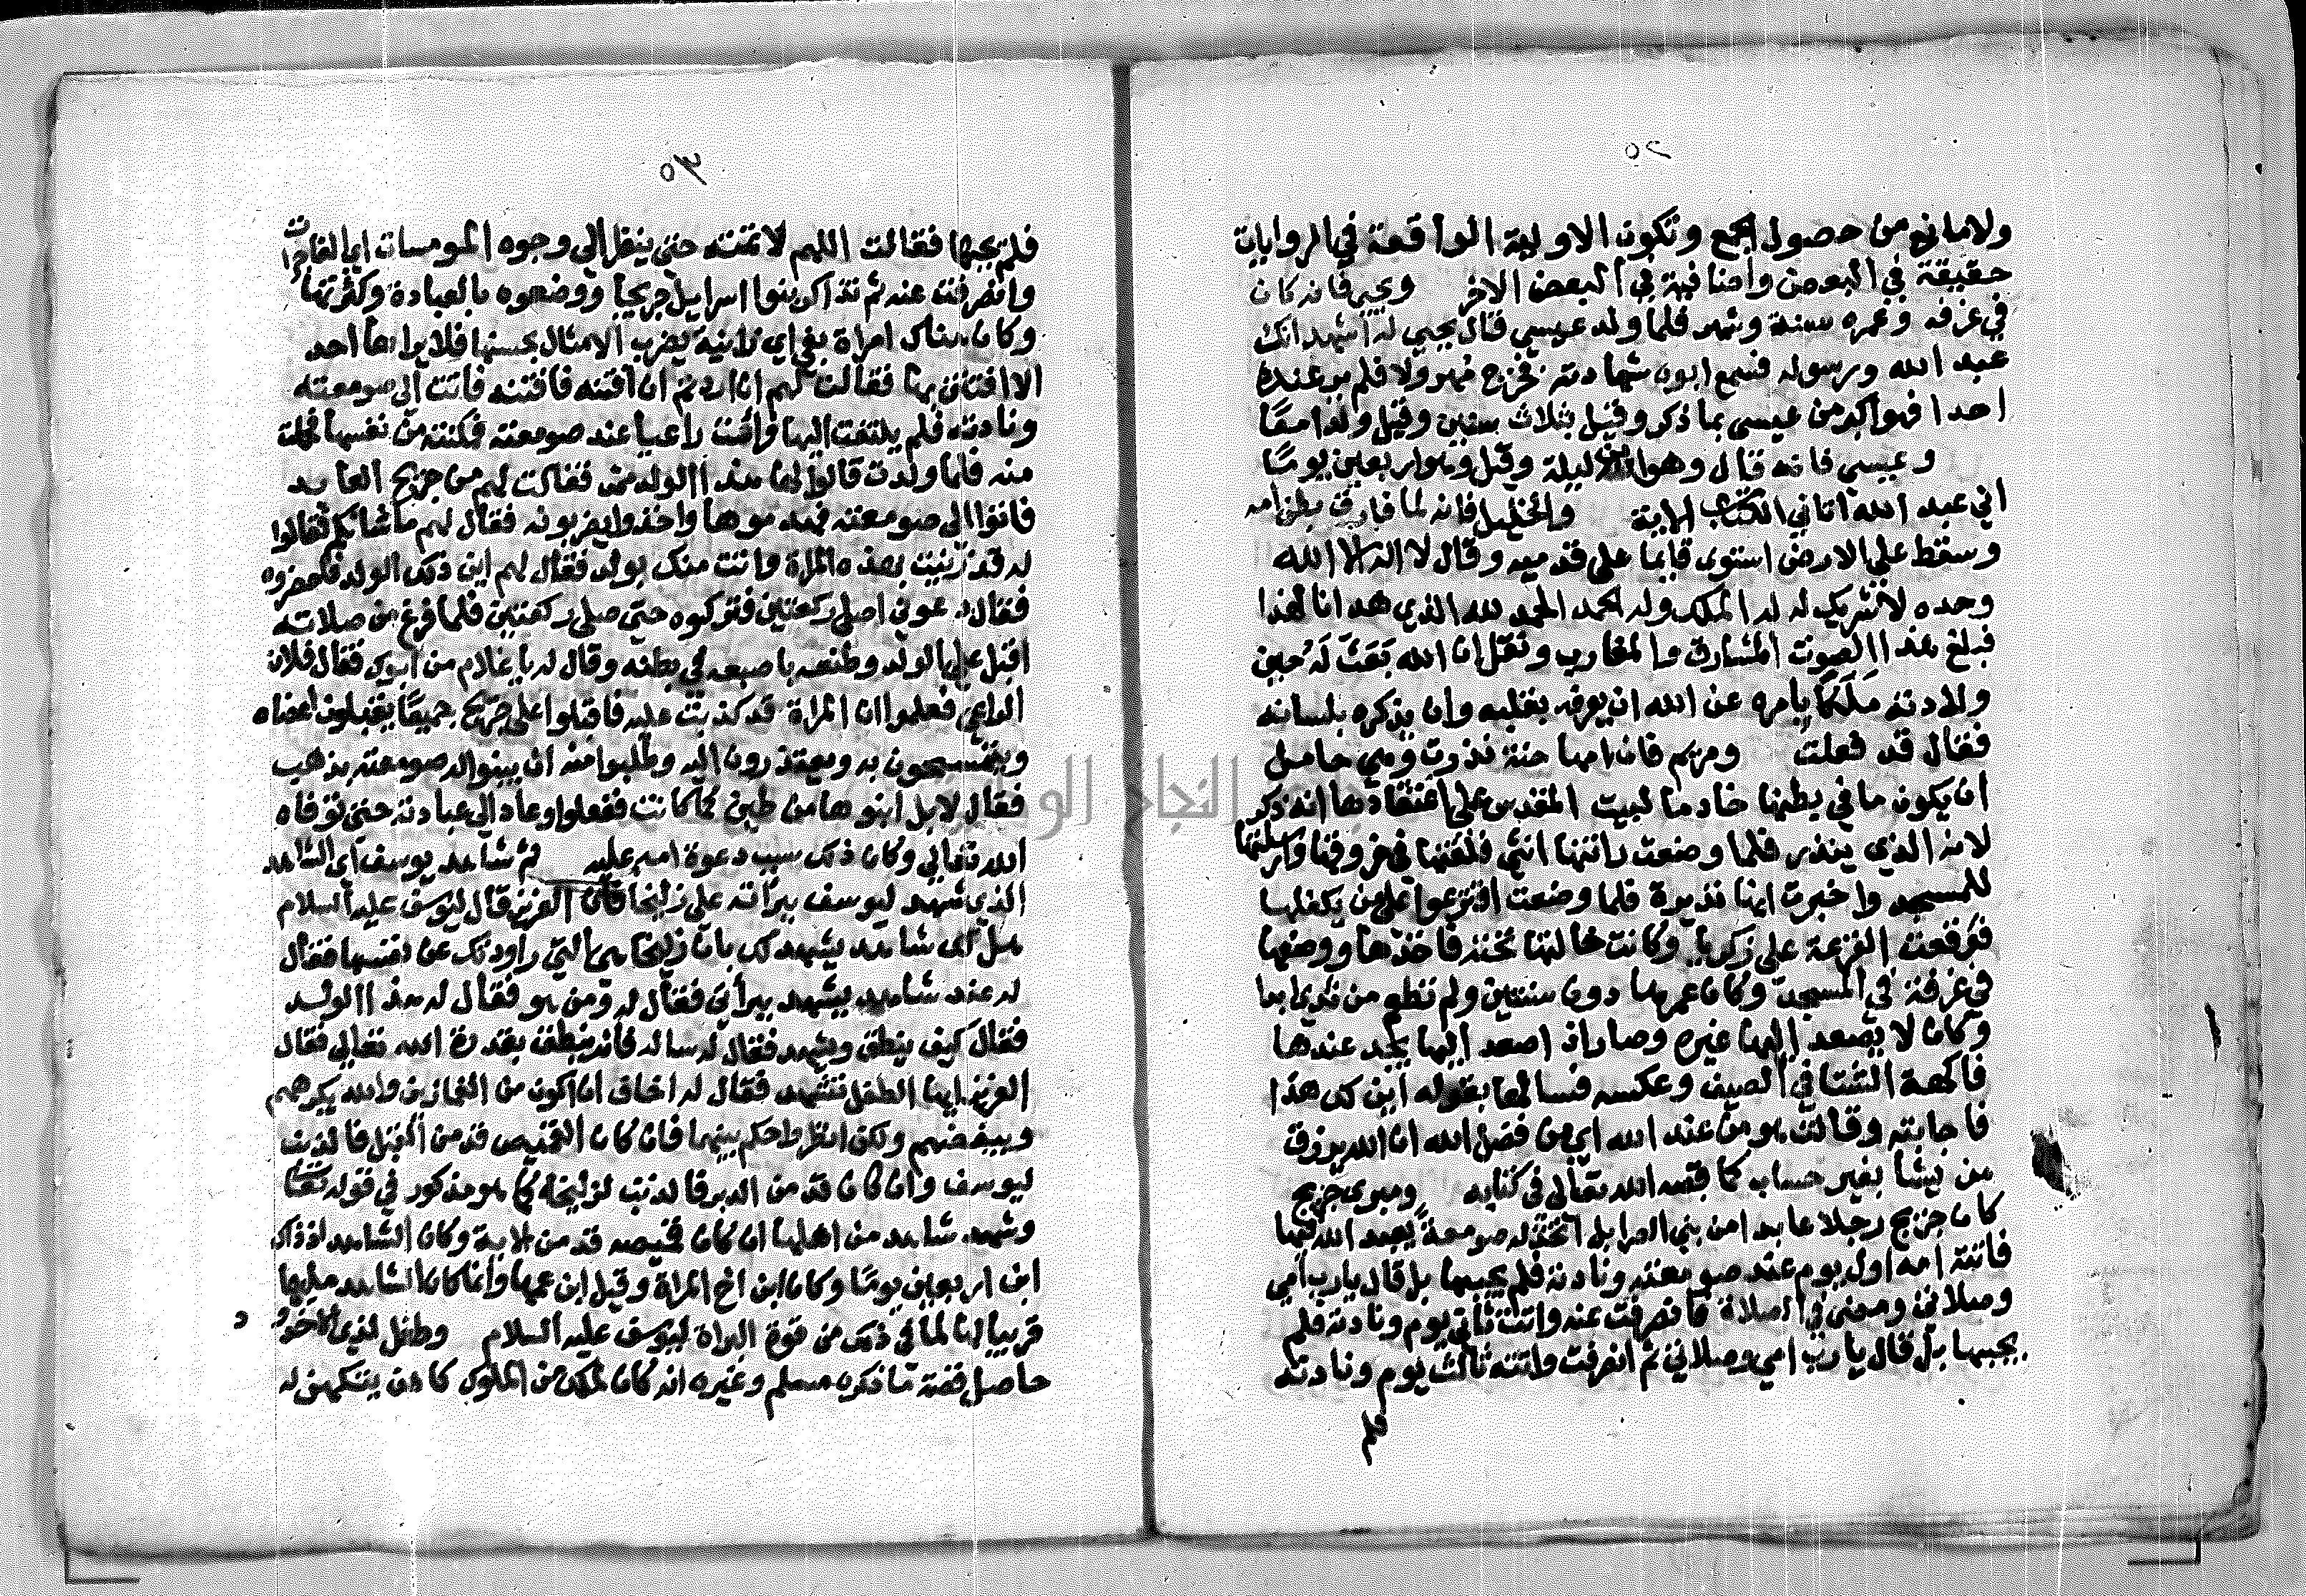 ٥٢
ولا مانع من حصول الجمع وتكون الاولية الواقعة في الروايات
حقيقة في البعض واضافية في البعض الاخر ويحيى فانه كان
في غرفه وعمره سنة وشهر فلما ولد عيسي قال يحيي له اشهد انك
عبد الله ورسوله فسمع ابوه شهادته فخرج مهرولا فلم ير عنده
احدا فهو اكبر من عيسى بما ذكر وقيل بثلاث سنين وقيل ولدا معًا
وعيسى فانه قال وهو ابن ليلة وقيل وهو ابن اربعين يومًا
اني عبد الله اتاني الكتاب الاية والخليل فانه لما فارق بطن امه
وسقط على الارض استوى قايما على قدميه وقال لا اله الا الله
وحده لا شريك له له الملك وله الحمد الحمد لله الذي هدانا لهذا
فبلغ هذا الصوت المشارق والمغارب ونقل ان الله بَعَثَ لَهُ حين
ولادته مَلَكًا يامره عن الله ان يعرفه بقلبه وان يذكره بلسانه
فقال قد فعلت ومريم فان امها حنة نذرت وهي حامل
ان يكون ما في بطنها خادما لبيت المقدس على اعتقادها انه ذكر
لانه الذي ينذر فلما وضعت راتها انثى فلفتها في خروقها وارسلتها
للمسجد واخبرت انها نذيرة فلما وضعت اقترعوا على من يكفلها
فوقعت القرعة على زكريا وكانت خالتها تحته فاخذها ووضعها
في غرفة في المسجد وكان عمرها دون سنتين ولم تطعم من ثدي ابدا
وكان لا يصعد اليها غيره وصار اذا صعد اليها يجد عندها
فاكهة الشتا في الصيف وعكسه فسالها بقوله اين لك هذا
فاجابته وقالت هو من عند الله اي من فضل الله ان الله يرزق
من يشا بغير حساب كما قصه الله تعالى في كتابه ومبرى جريج
كان جريج رجلا عابدا من بني اسرايل اتخذ له صومعة يعبد الله فيها
فاتته امه اول يوم عند صومعته ونادته فلم يجيبها بل قال يا رب امي
وصلاتي ومضى في الصلاة فانصرفت عنه واتته ثاني يوم ونادته فلم
يجيبها بل قال يا رب امي وصلاتي ثم انصرفت واتته ثالث يوم ونادته
فلم
٥٣
فلم يجبها فقالت اللهم لا تمته حتى ينظر الى وجوه المومسات اي الفاجرات
وانصرفت عنه ثم تذاكر بنوا اسرايل جريجا ووصفوه بالعبادة وكثرتها
وكان هناك امراة بغي اي زانية يضرب الامثال بحسنها فلا يراها احد
الا افتتن بها فقالت لهم ان اردتم ان افتنه فافتنه فاتت الى صومعته
ونادته فلم يلتفت اليها واتت راعيا عند صومعته فمكنته من نفسها فحملت
منه فلما ولدت قالوا لها هذا الولد ممن فقالت لهم من جريج العابد
فاتوا الى صومعته فهدموها واخذوا يضربونه فقال لهم ما شانكم فقالوا
له قد زنيت بهذه المراة واتت منك بولد فقال لهم اين ذلك الولد فاحضروه
فقال دعوني اصلي ركعتين فتركوه حتى صلى ركعتين فلما فرغ من صلاته
اقبل على الولد وطعنه باصبعه في بطنه وقال له يا غلام من ابوك فقال فلان
الراعي فعلموا ان المراة قد كذبت عليه فاقبلوا على جريج جميعًا يقبلون اعضاه
ويتمسحون به ويعتذرون اليه وطلبوا منه ان يبنوا له صومعته بذهب
فقال لا بل ابنوها من طين كما كانت ففعلوا وعاد الى عبادته حتى توفاه
الله تعالى وكان ذلك سبب دعوة امه عليه ثم شاهد يوسف اي الشاهد
الذي شهد ليوسف ببراته على زليخا فان العزيز قال ليوسف عليه السلام
هل لك شاهد يشهد لك بان زليخا هي التي راودتك عن نفسها فقال
له عند شاهد يشهد ببراتي فقال له ومن هو فقال له هذا الولد
فقال كيف ينطق ويشهد فقال له ساله فانه ينطق بقدرة الله تعالى فقال
العزيز ايها الطفل تشهد فقال له اخاف ان اكون من الغمازين والله يكرههم
ويبغضهم ولكن انظر واحكم بينهما فان كان القميص قد من القبل فالذنب
ليوسف وان كان قد من الدبر فالذنب لزليخا كما هو مذكور في قوله تعالى
وشهد شاهد من اهلها ان كان قميصه قد من الاية وكان الشاهد اذ ذاك
ابن اربعين يومًا وكان ابن اخ المراة وقيل ابن عمها وانما كان الشاهد عليها
قريبا لها لما في ذلك من قوة البراة ليوسف عليه السلام وطفل لذي الاخدود
حاصل قصته ما ذكره مسلم وغيره انه كان لملك من الملوك كاهن يتكهن له